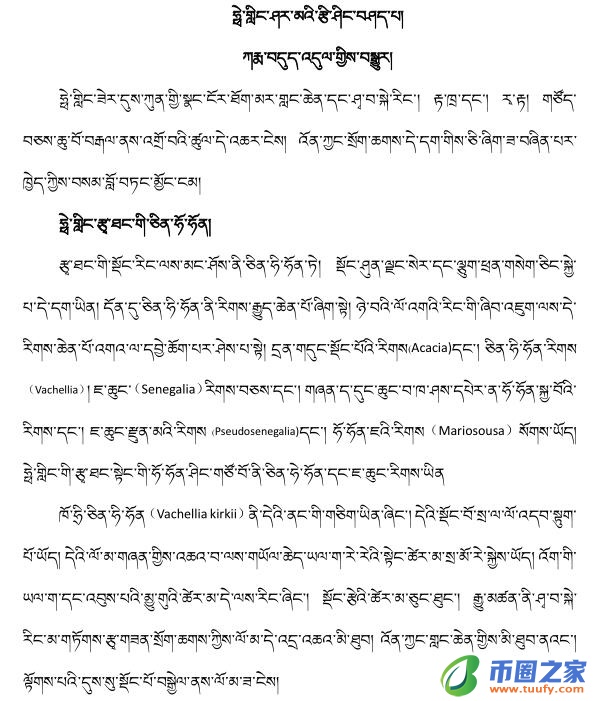 ཧྥེ་གླིང་ཤར་མའི་རྩི་ཤིང་བཤད་པ།
ཀརྨ་བདུད་འདུལ་གྱིས་བསྒྱུར།
ཧྥེ་གླིང་ཟེར་དུས་ཀུན་གྱི་སྣང་ངོར་ཐོག་མར་གླང་ཆེན་དང་ཤྭ་བ་སྐེ་རིང་། རྟ་ཁྲ་དང་། ར་རྟ། གཙོད་
བཅས་ཆུ་བོ་བརྒལ་ནས་འགྲོ་བའི་ཚུལ་དེ་འཆར་ངེས། འོན་ཀྱང་སྲོག་ཆགས་དེ་དག་གིས་ཅི་ཞིག་ཟ་བཞིན་པར་
ཁྱེད་ཀྱིས་བསམ་བློ་བཏང་མྱོང་ངམ།
ཧྥེ་གླིང་རྩྭ་ཐང་གི་ཅིན་ཧོ་ཧོན།
རྩྭ་ཐང་གི་སྡོང་རིང་ལས་མང་ཤོས་ནི་ཅིན་ཧི་ཧོན་ཏེ། སྡོང་ཤུན་ལྗང་སེར་དང་ལྕུག་ཕྲན་གསེག་ཅིང་སྐྱེ་
པ་དེ་དག་ཡིན། དོན་དུ་ཅིན་ཧི་ཧོན་ནི་རིགས་རྒྱུད་ཆེན་པོ་ཞིག་སྟེ། ཉེ་བའི་ལོ་འགའི་རིང་གི་ཞིབ་འཇུག་ལས་དེ་
རིགས་ཆེན་པོ་འགའ་ལ་དབྱེ་ཆོག་པར་ཤེས་པ་སྟེ། དྲན་གདུང་སྡོང་པོའི་རིགས(Acacia)དང་། ཅིན་ཧི་ཧོན་རིགས
（Vachellia）། ཇ་ཆུང་（Senegalia）རིགས་བཅས་དང་། གཞན་ད་དུང་ཆུང་བ་ཁ་ཤས་དཔེར་ན་ཧོ་ཧོན་སྐྱ་བོའི་
རིགས་དང་། ཇ་ཆུང་རྫུན་མའི་རིགས（Pseudosenegalia)དང་། ཧོ་ཧོན་ཇའི་རིགས（Mariosousa）སོགས་ཡོད།
ཧྥེ་གླིང་གི་རྩྭ་ཐང་སྟེང་གི་ཧོ་ཧོན་ཤིང་གཙོ་བོ་ནི་ཅིན་ཧེ་ཧོན་དང་ཇ་ཆུང་རིགས་ཡིན
ཁོ་ཧྲི་ཅིན་ཧི་ཧོན（Vachellia kirkii）ནི་དེའི་ནང་གི་གཅིག་ཡིན་ཞིང་། དེའི་སྡོང་བོ་སྲ་ལ་ལོ་འདབ་སྟུག་
པོ་ཡོད། དེའི་ལོ་མ་གཞན་གྱིས་འཆའ་བ་ལས་གཡོལ་ཆེད་ཡལ་ག་རེ་རེའི་སྟེང་ཚེར་མ་སྲ་མོ་རེ་སྐྱེས་ཡོད། འོག་གི་
ཡལ་ག་དང་འབུས་པའི་མྱུ་གུའི་ཚེར་མ་དེ་ལས་རིང་ཞིང་། སྡོང་རྩེའི་ཚེར་མ་ཅུང་ཐུང་། རྒྱུ་མཚན་ནི་ཤྭ་བ་སྐེ་
རིང་མ་གཏོགས་རྩྭ་གཟན་སྲོག་ཆགས་ཀྱིས་ལོ་མ་དེ་འདྲ་འཆའ་མི་ཐུབ། འོན་ཀྱང་གླང་ཆེན་གྱིས་མི་ཐུབ་ནའང་།
ལྟོགས་པའི་དུས་སུ་སྡོང་པོ་བསྒྱེལ་ནས་ལོ་མ་ཟ་ངེས།
币圈之家
www.tuufy.com